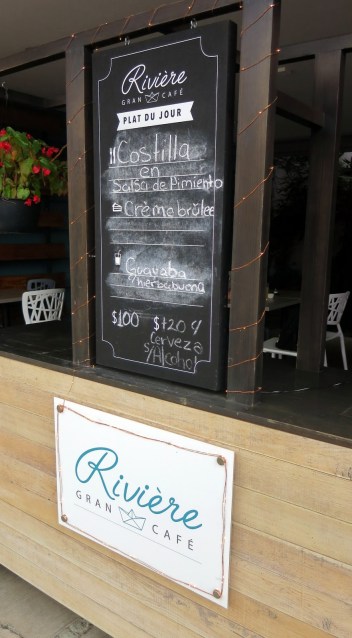 Rivière
GRAN CAFÉ
PLAT DU JOUR
Costilla
en
Salsa de Pimiento
Crème brûlee
Guayaba
yhierbabuena
$100 $+20 y
Cerveza
s/Alcohol
Rivière
GRAN CAFÉ